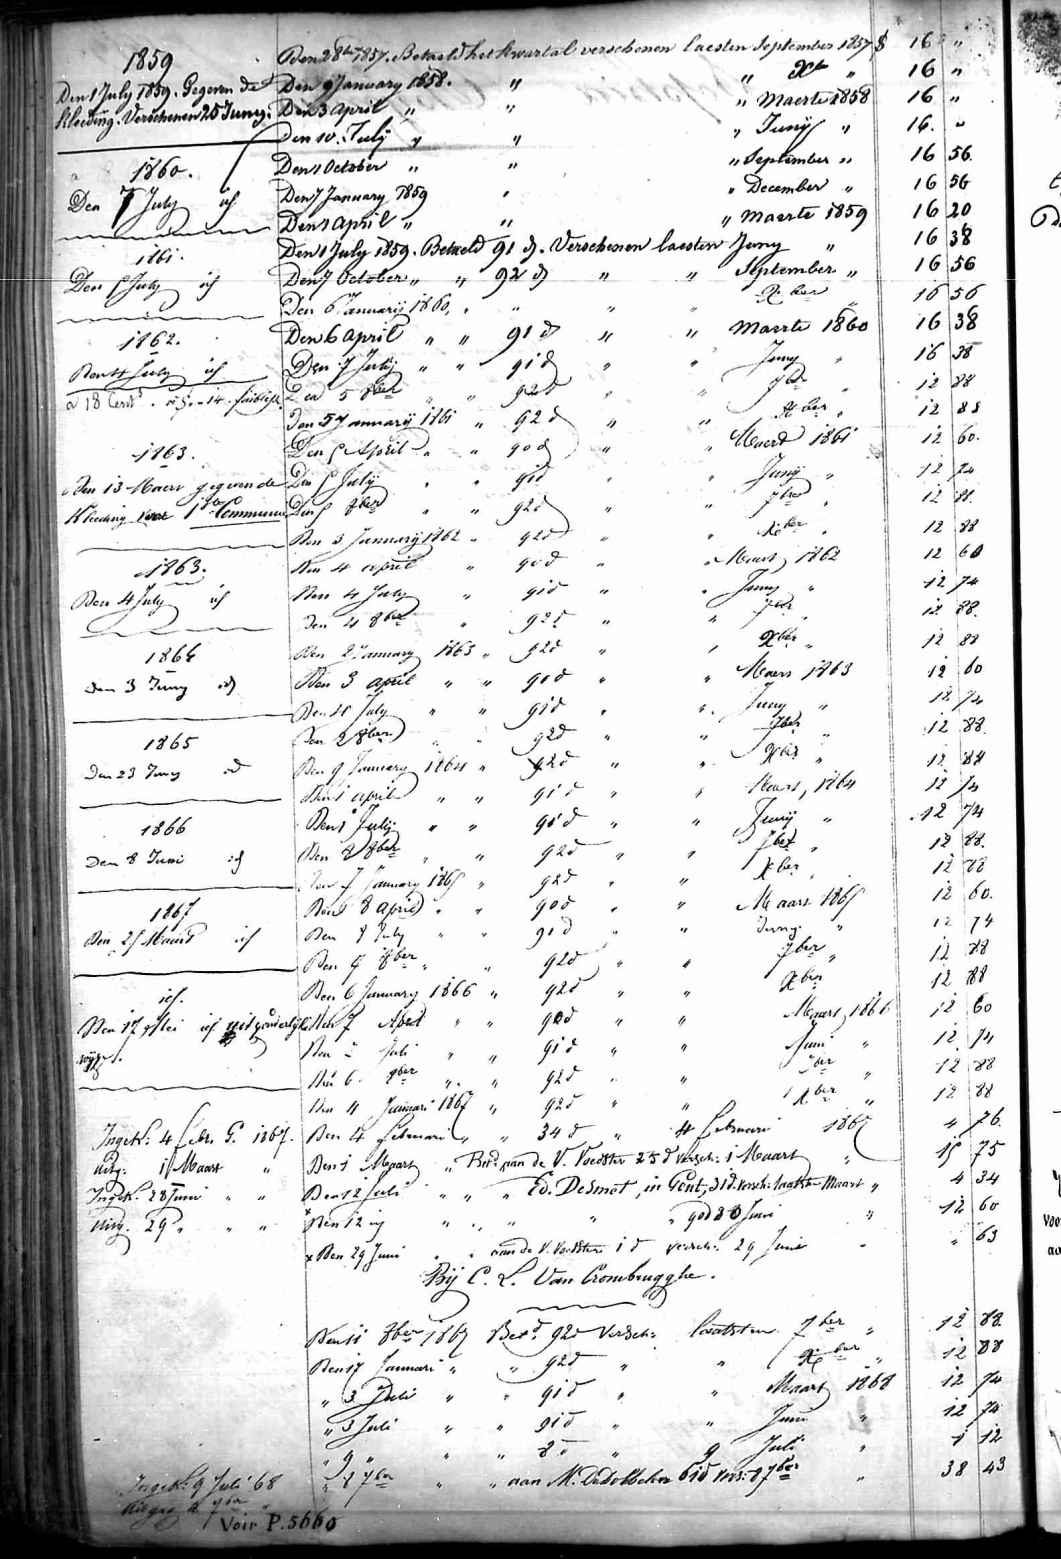 1859
Den 1 July 1859. Gegeven de
Kleeding. Verschenen 25 Juny.
1860.
Den 7 July id
1861.
Den 5 July id
1862.
Den 4 July id
a 18 Cent
1863.
Den 13 Maert gegeven de
Kleeding voor 1ste Communie
1863.
Den 4 July id
1864
Den 3 Juny id
1865
Den 23 Juny id
1866
Den 8 Juni id
1867
Den 25 Maart id
id.
Den 17 Mei id
Ingek: 4 Febr. 1867.
Uitg: 1 Maart "
Ingek. 28 Juni " "
Uitg. 29 " " "
Ingek: 9 Juli 68
Voir P. 5660
Den 28 1857. Betaeld het kwartal verschenen laesten September 1857 $ 16 "
Den 9 January 1858. " " Xber " 16 "
Den 3 April " " " Maerte 1858 16 "
Den 10 July " " " Juny " 16. "
Den 1 October " " " September " 16 56.
Den 7 January 1859 " " December " 16 56
Den 1 April " " " Maerte 1859 16 20
Den 1 July 1859. Betaeld 91 d. Verschenen laesten Juny " 16 38
Den 7 October " " 92 d " " September " 16 56
Den 6 January 1860, " " " " Xber " 16 56
Den 6 April " " 91 d " " Maerte 1860 16 38
Den 7 July " " 91 d " " Juny " 16 38
Den 5 8ber " " 92 d " " 7ber " 12 88
Den 5 January 1861 " 92 d " " Xber " 12 88
Den 5 April " " 90 d " " Maert 1861 12 60.
Den 5 July " " 91 d " " Juny " 12 74
Den 5 8ber " " 92 d " " 7ber " 12 88.
Den 3 January 1862 " 92 d " " Xber " 12 88
Den 4 april " 90 d " " Maart 1862 12 60
Den 4 July " 91 d " " Juny " 12 74
Den 4 8ber " 92 d " " 7ber " 12 88.
Den 2 January 1863 " 92 d " " Xber " 12 88
Den 3 april " " 90 d " " Maers 1863 12 60
Den 11 July " " 91 d " " Juny " 12 74
Den 2 8ber " " 92 d " " 7ber " 12 88.
Den 9 January 1864 " 92 d " " Xber " 12 88
Den 1 april " " 91 d " " Maart, 1864 12 74
Den 1 July " " 91 d " " Junij " 12 74
Den 8 8ber " " 92 d " " 7ber " 12 88.
Den 7 January 1865 " 92 d " " Xber " 12 88
Den 8 april " " 90 d " " Maart 1865 12 60.
Den 8 July " " 91 d " " Juny " 12 74
Den 9 8ber " " 92 d " " 7ber " 12 88
Den 6 January 1866 " 92 d " " Xber " 12 88
Den 7 April " " 90 d " " Maart, 1866 12 60
Den Juli " " 91 d " " Juni " 12 74
Den 6 8ber " " 92 d " " 7ber " 12 88
Den 4 Januari 1867 " 92 d " " Xber " 12 88
Den 4 Februari " " 34 d " 4 Februari 1867 4 76.
Den 1 Maart " aan de V. Voedster 25 d versch: 1 Maart " 15 75
Den 12 Juli " " " Ed. Desmet, in Gent, 31 d. versch: laatsten Maart " 4 34
Den 12 id " " " " 90 d 30 Juni " 12 60
x Den 29 Juni " " aan de V. Voedster 1 d versch: 29 Juni " " 63
Bij C. L. Van Crombrugghe.
Den 11 8ber 1867 Betd. 92 d Versch: laatsten 7ber " 12 88
Den 17 Januari " " 92 d " " Xber " 12 88
" 3 " " 91 d " " Maart 1868 12 74
" 3 Juli " " 91 d " " Juni " 12 74
" 9 " " " 8 d " 9 Juli " 1 12
" 8 7ber " " aan M. 61 d vers: 8 7ber " 38 43